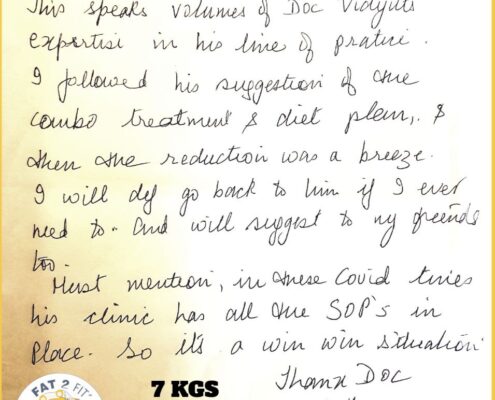 This speaks volumes of Doc Vidyuts
expertise in his line of pratice.
I followed his suggestion of the
combo treatment & diet plan,. &
then the reduction was a breeze.
I will def go back to him if I ever
need to. And will suggest to my friends
too.
Must mention, in these Covid times
his clinic has all the SOP's in
Place. So it's a win win situation
Thanx DOC
7 KGS
FAT 2 FIT